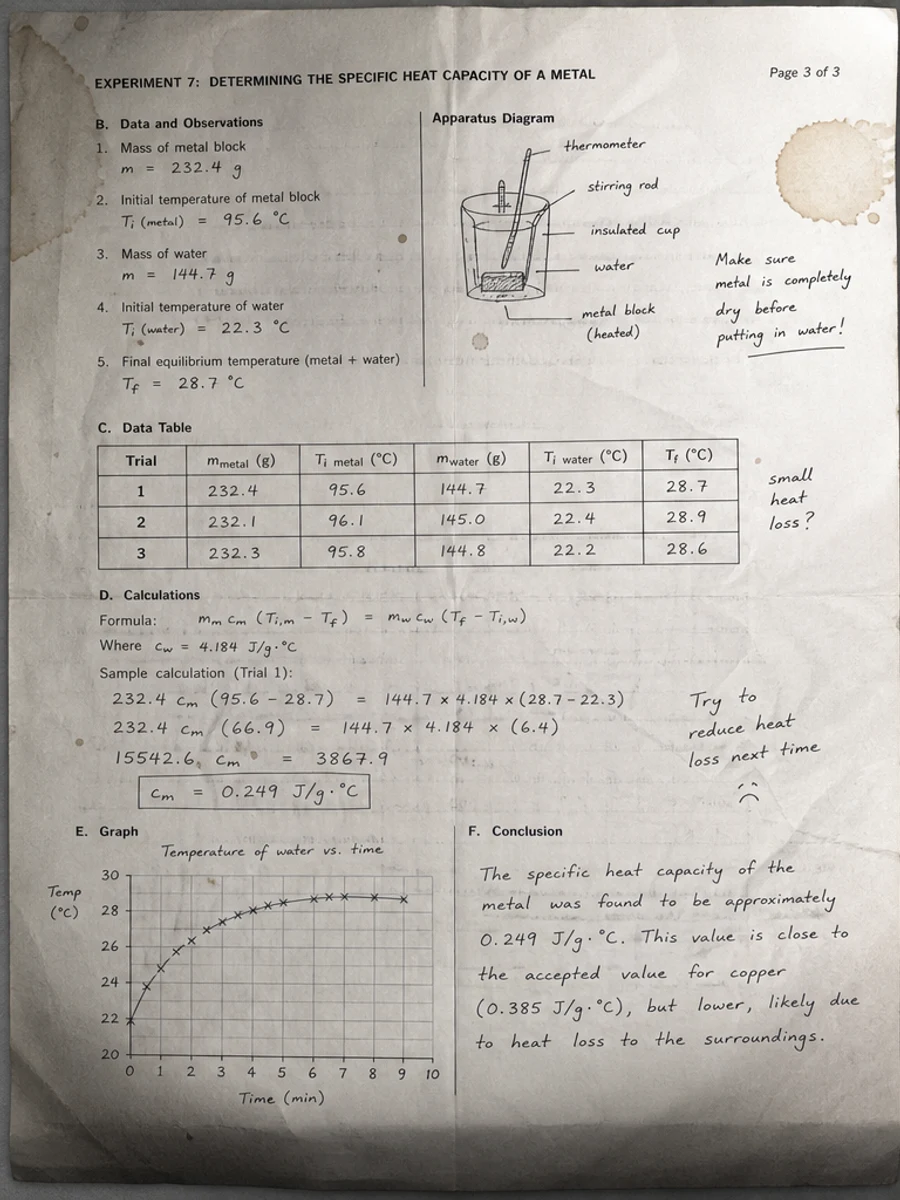 EXPERIMENT 7: DETERMINING THE SPECIFIC HEAT CAPACITY OF A METAL
Page 3 of 3
B. Data and Observations
1. Mass of metal block
m = 232.4 g
2. Initial temperature of metal block
Ti (metal) = 95.6 °C
3. Mass of water
m = 144.7 g
4. Initial temperature of water
Ti (water) = 22.3 °C
5. Final equilibrium temperature (metal + water)
Tf = 28.7 °C
Apparatus Diagram
thermometer
stirring rod
insulated cup
water
metal block
(heated)
Make sure
metal is completely
dry before
putting in water!
C. Data Table
Trial mmetal (g) Ti metal (°C) mwater (g) Ti water (°C) Tf (°C)
1 232.4 95.6 144.7 22.3 28.7
2 232.1 96.1 145.0 22.4 28.9
3 232.3 95.8 144.8 22.2 28.6
small
heat
loss?
D. Calculations
Formula: mm cm (Ti,m − Tf) = mw cw (Tf − Ti,w)
Where cw = 4.184 J/g·°C
Sample calculation (Trial 1):
232.4 cm (95.6 − 28.7) = 144.7 × 4.184 × (28.7 − 22.3)
232.4 cm (66.9) = 144.7 × 4.184 × (6.4)
15542.6 cm = 3867.9
cm = 0.249 J/g·°C
Try to
reduce heat
loss next time
E. Graph
Temperature of water vs. time
Temp
(°C)
30
28
26
24
22
20
0 1 2 3 4 5 6 7 8 9 10
Time (min)
F. Conclusion
The specific heat capacity of the
metal was found to be approximately
0.249 J/g·°C. This value is close to
the accepted value for copper
(0.385 J/g·°C), but lower, likely due
to heat loss to the surroundings.